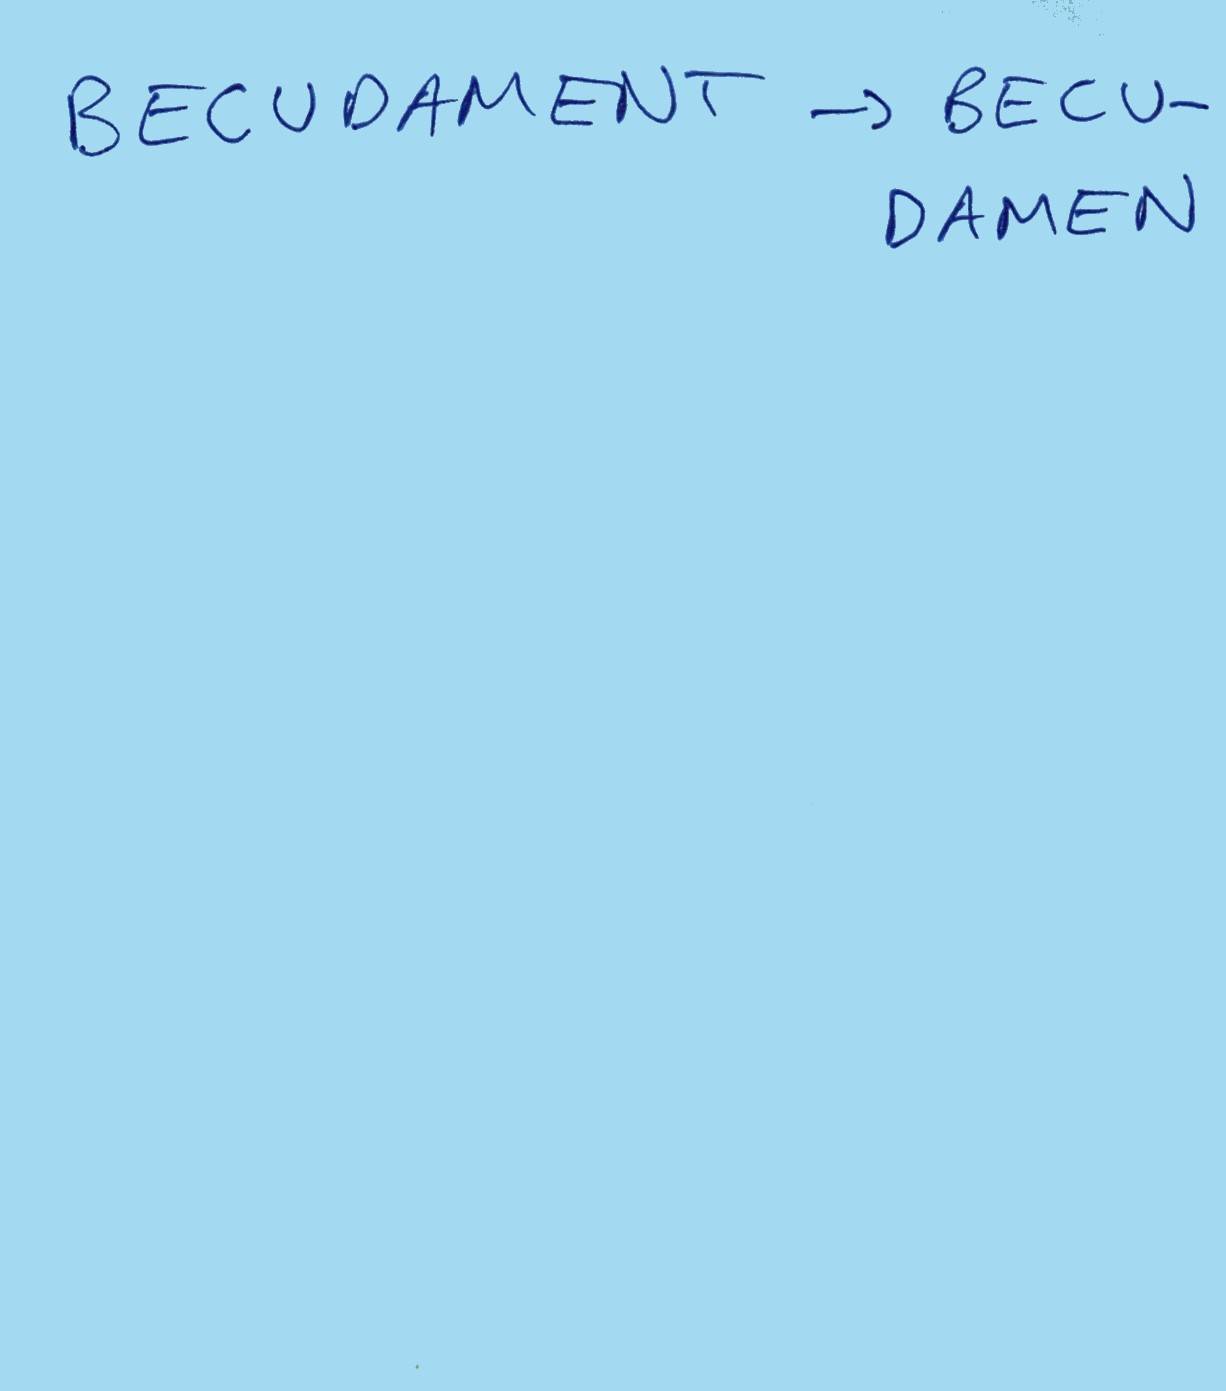 BECUDAMENT → BECU-
DAMEN